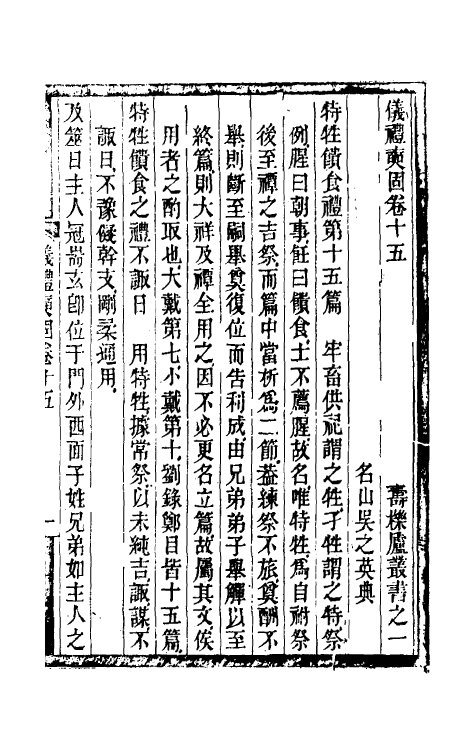 儀禮奭固卷十五　壽櫟廬叢書之一
名山吳之英典
特牲饋食禮第十五篇　牢畜供祀謂之牲孑牲謂之特祭
例腥曰朝事飪曰饋食士不薦腥故名唯特牲爲自祔祭
後至禫之吉祭而篇中當析爲二節葢練祭不旅奠酬不
舉則斷至嗣舉奠復位而告利成由兄弟弟子舉觶以至
終篇則大祥及禫全用之因不必更名立篇故屬其文俟
用者之酌取也大戴第七小戴第十劉錄鄭目皆十五篇
特牲饋食之禮不諏日　用特牲據常祭以未純吉諏謀不
諏日不豫儗幹支剛柔通用
及筮日主人冠耑玄卽位于門外西面子姓兄弟如主人之
儀禮奭固卷十五　一